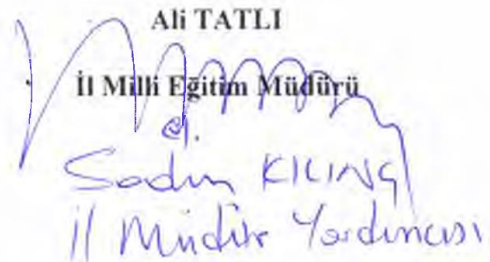 Ali TATLI
İl Milli Eğitim Müdürü
Sadın KILINÇ
İl Müdür Yardımcısı